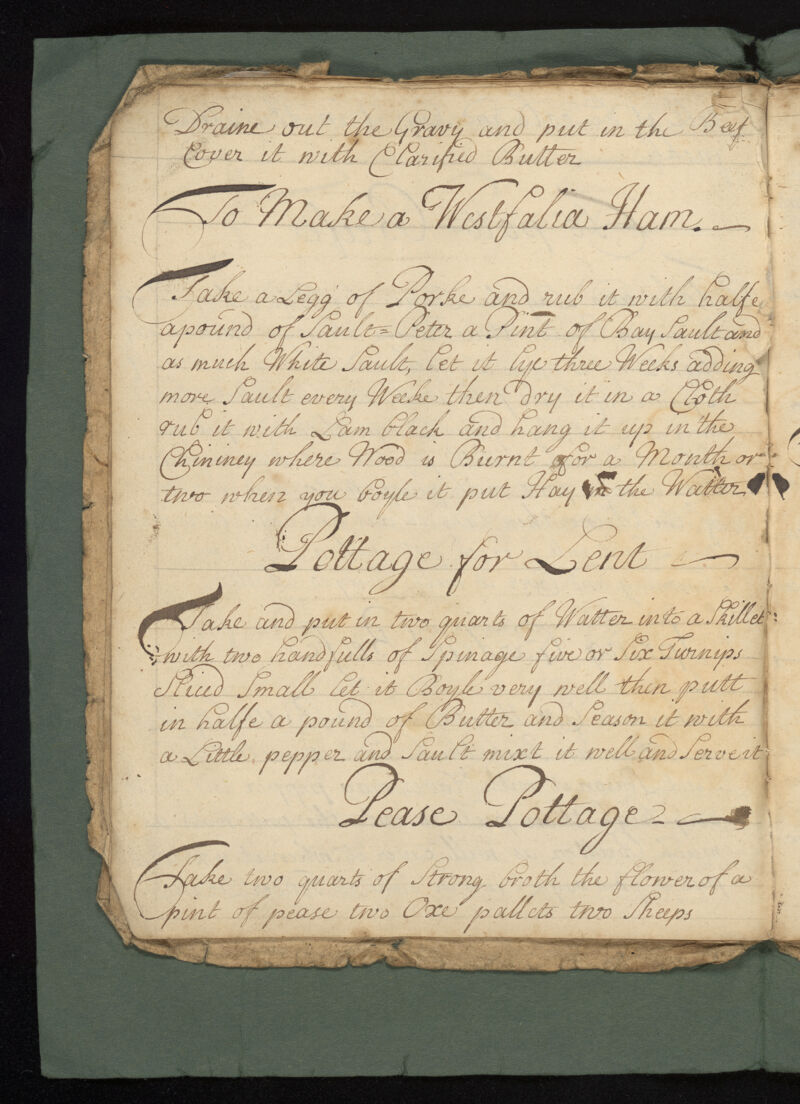 Draine out the Gravy and put in the Beef
Cover it with Clarified Butter
To Make a Westfalia Ham.
Take a Legg of Porke and rub it with halfe
a pound of Sault=Peter a Pint of Bay Sault and
as much White Sault, let it lye three Weeks adding
more Sault every Weeke then dry it in a Cloth
rub it with Lam black and hang it up in the
Chiminey where Wood is Burnt for a Month or
two when you boyle it put Hay in the Watter
Pottage for Lent
Take and put in two quarts of Watter into a Skillet
with two handfulls of Spinage five or Six Turnips
Sliced Small let it Boyle very well then putt
in halfe a pound of Butter and Season it with
a Little pepper and Sault mixt it well and Serve it
Pease Pottage
Take two quarts of Strong broth the flower of a
pint of pease two Oxe pallets two Sheeps